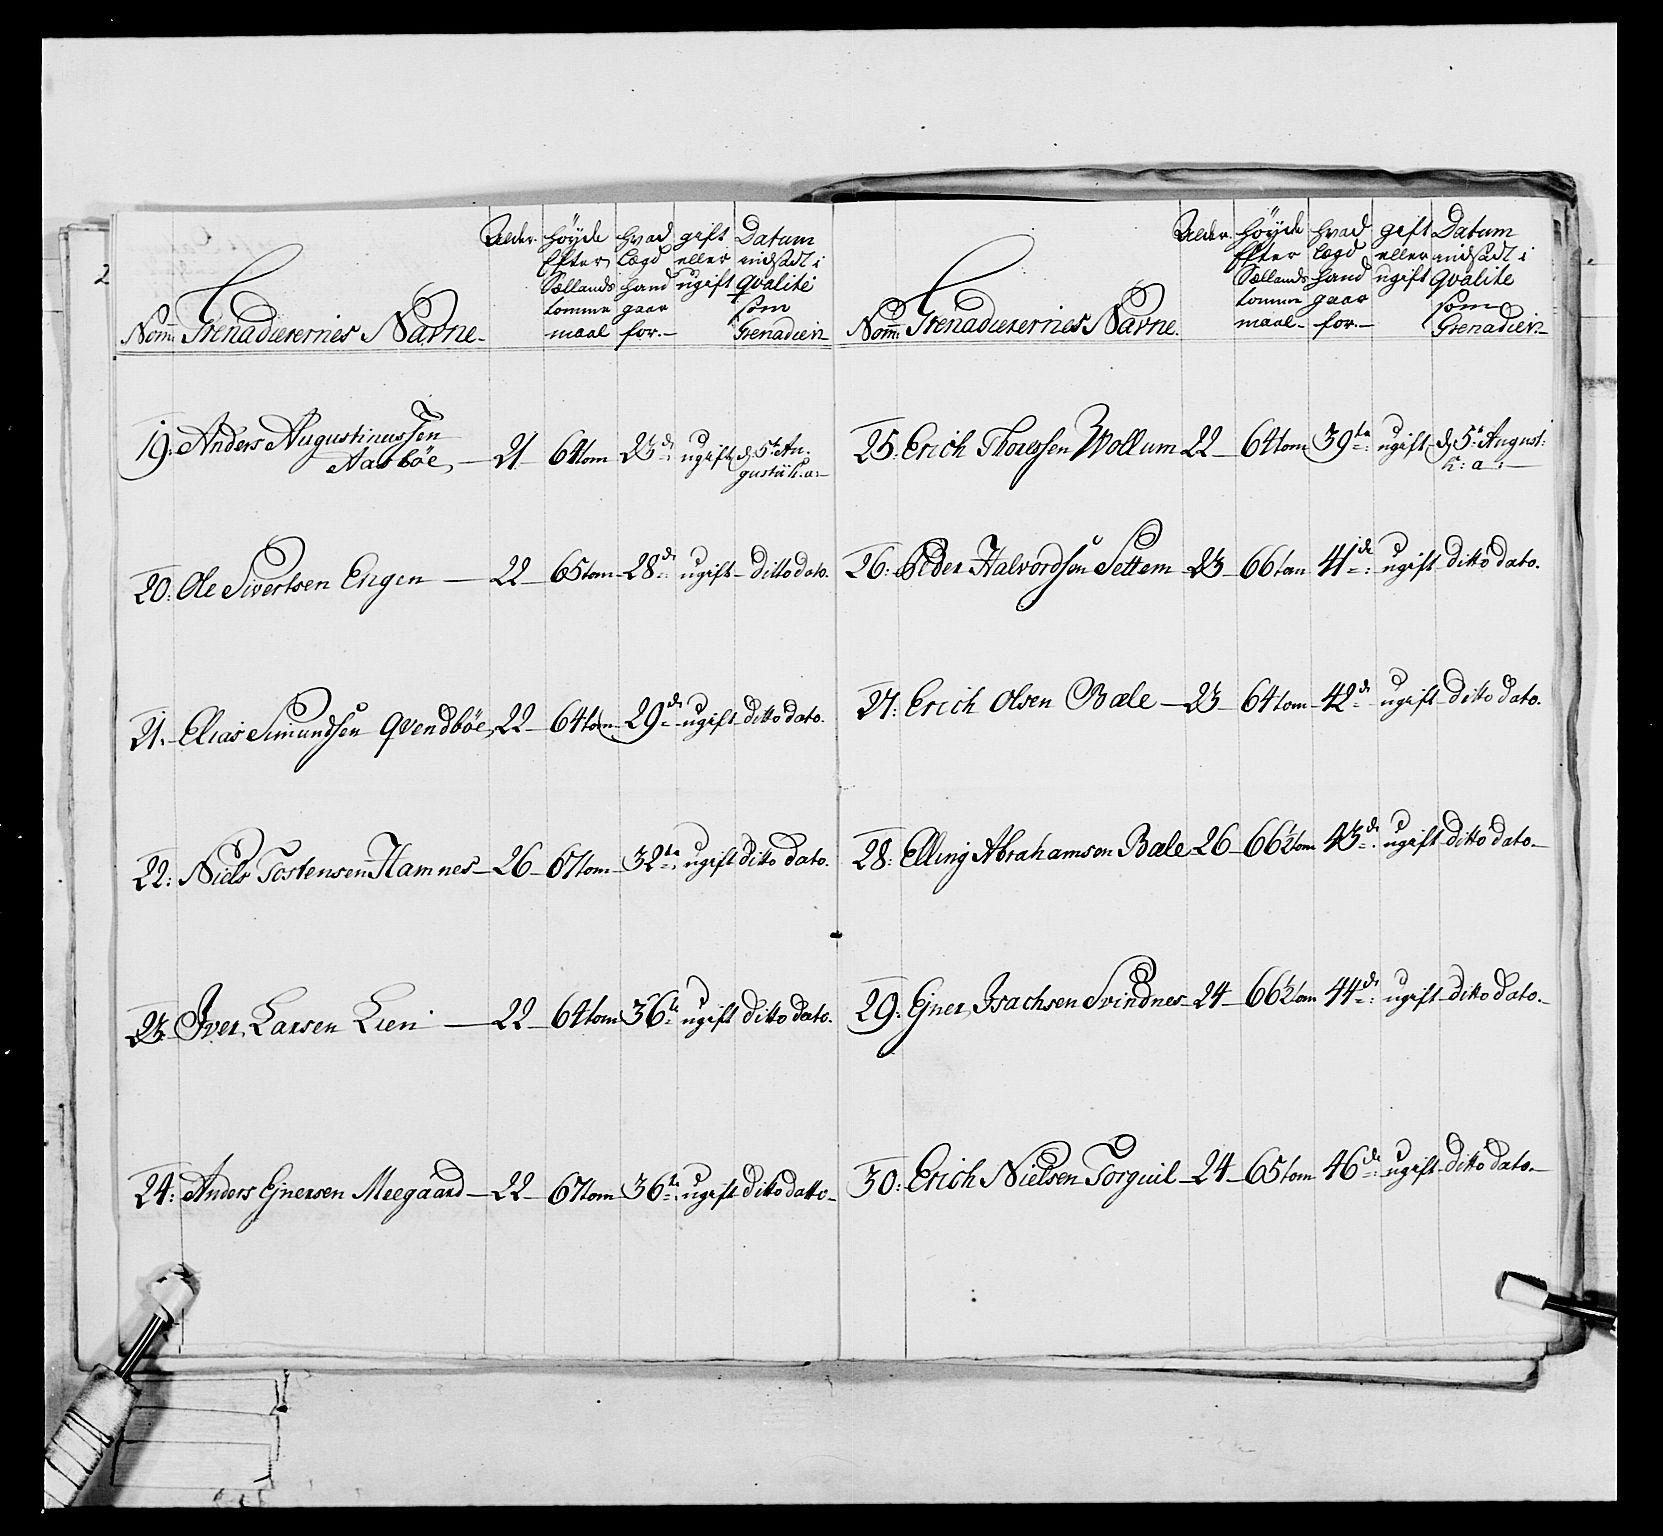 2
Nom: Grenaderernes Navne. Alder. höyde Efter Sællands tomme maal hvad Lægd hand gaar for. gift eller ugift Datum indsadt i Qvalite som Grenadier
19: Anders Augustinussen
Aasböe, 21 64 tom 23de ugift d 5te Au-
gustii h: a:
20: Ole Sivertsen Engen 22 65 tom 28de ugift ditto dato.
21. Elias Simundsen Qvendböe, 22 64 tom 29de ugift ditto dato.
22: Niels Tostensen Hamnes 26 67 tom 32te ugift ditto dato.
23: Iver Larsen Lien 22 64 tom 36te ugift ditto dato.
24: Anders Ejnersen Meegaard 22 67 tom 36te ugift ditto datto
Nom: Grenaderernes Navne. Alder. höyde Efter Sællands tomme maal hvad Lægd hand gaar for. gift eller ugift Datum indsadt i Qvalite som Grenadier
25: Erich Thoressen Wollum 22 64 tom 39te ugift d 5te August:
h: a:
26: Peder Halvordsen Settem 23 66 tom 41de ugift ditto dato.
27: Erich Olsen Bæle 23 64 tom 42de ugift ditto dato.
28: Elling Abrahamsen Bæle 26 66½ tom 43de ugift ditto dato
29: Ejner Isachsen Svindnes 24 66½ tom 44de ugift ditto dato.
30: Erich Nielsen Torguil 24 65 tom 46de ugift ditto dato